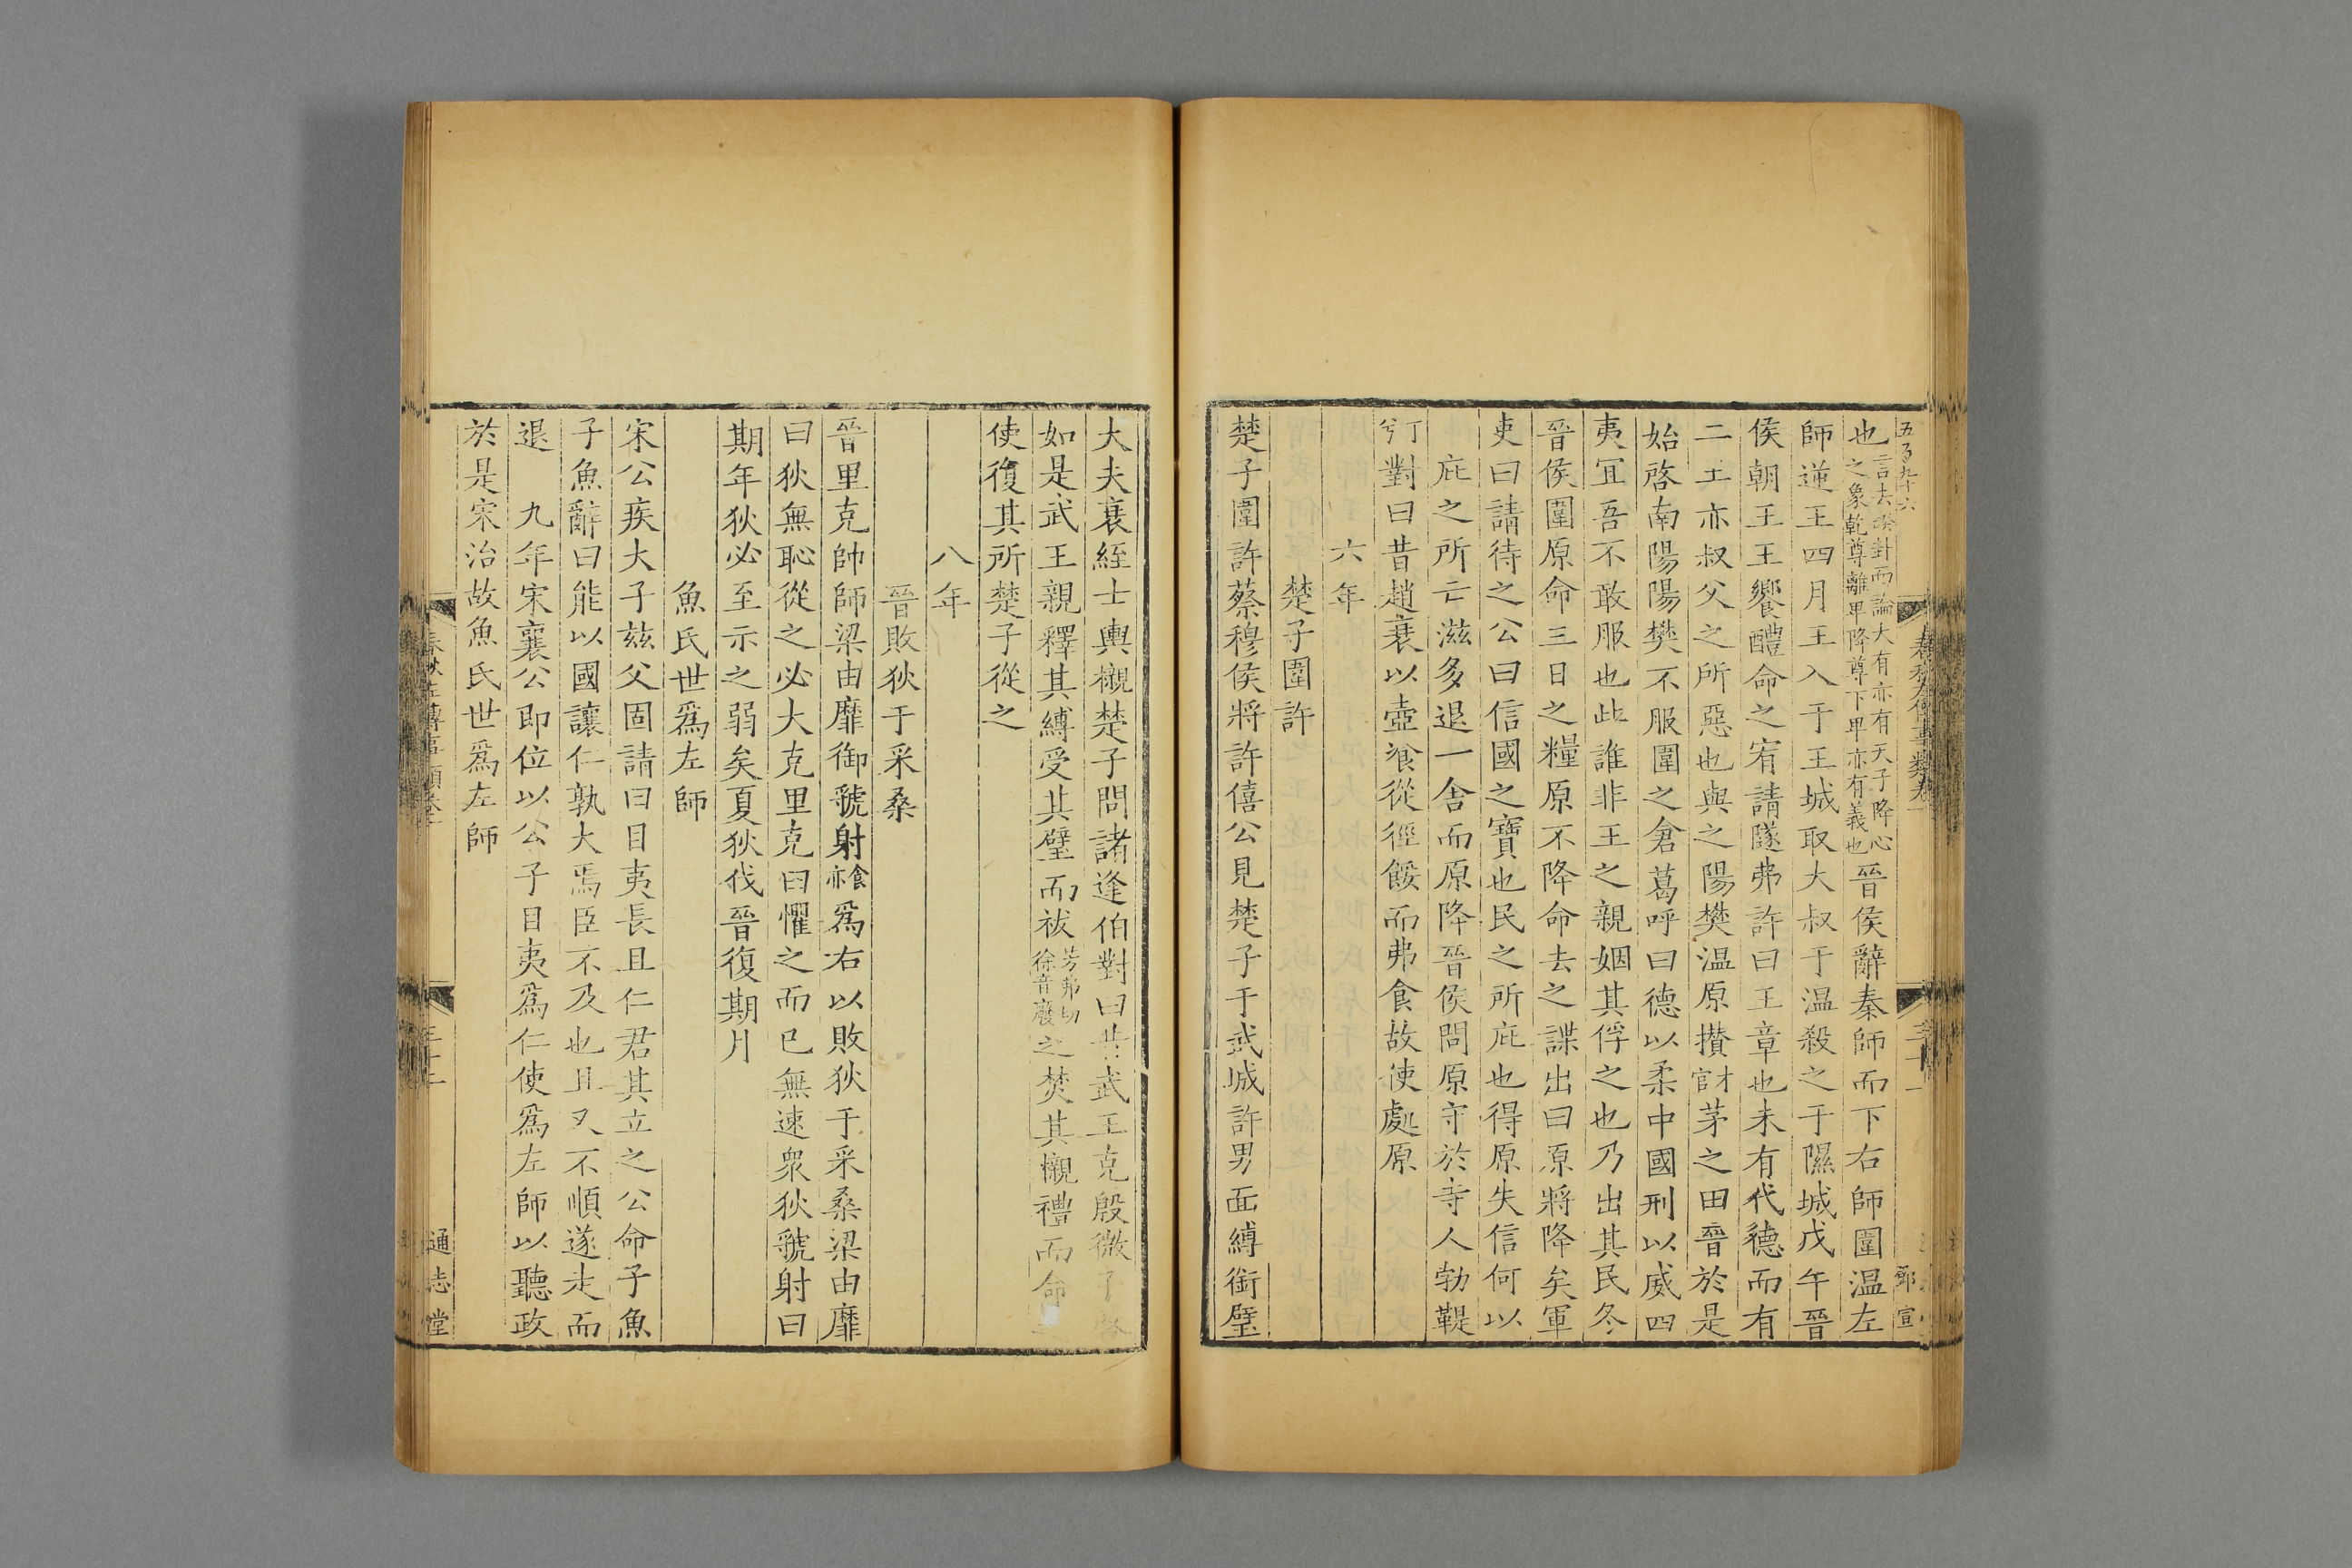 五百九十六
也言去睽卦而論大有亦有天子降心之象乾尊離卑降尊下卑亦有義也晉侯辭秦師而下右師圍温左
師逆王四月王入于王城取大叔于温殺之于隰城戊午晉
侯朝王王饗醴命之宥請隧弗許曰王章也未有代德而有
二王亦叔父之所惡也與之陽樊温原攢才官茅之田晉於是
始啓南陽陽樊不服圍之倉葛呼曰德以柔中國刑以威四
夷宜吾不敢服也此誰非王之親姻其俘之也乃出其民冬
晉侯圍原命三日之糧原不降命去之諜出曰原將降矣軍
吏曰請待之公曰信國之寶也民之所庇也得原失信何以
庇之所亡滋多退一舍而原降晉侯問原守於寺人勃鞮
丁兮對曰昔趙衰以壺飡從徑餒而弗食故使處原
六年
楚子圍許
楚子圍許蔡穆侯將許僖公見楚子于武城許男面縛銜璧
春秋左傳事類卷一
三十一
鄧宣
大夫衰絰士輿櫬楚子問諸逢伯對曰昔武王克殷微子啓
如是武王親釋其縛受其璧而祓芳弗切徐音廢之焚其櫬禮而命
使復其所楚子從之
八年
晉敗狄于采桑
晉里克帥師梁由靡御虢射食亦爲右以敗狄于采桑梁由靡
曰狄無恥從之必大克里克曰懼之而已無速衆狄虢射曰
期年狄必至示之弱矣夏狄伐晉復期月
魚氏世爲左師
宋公疾大子兹父固請曰目夷長且仁君其立之公命子魚
子魚辭曰能以國讓仁孰大焉臣不及也且又不順遂走而
退 九年宋襄公即位以公子目夷爲仁使爲左師以聽政
於是宋治故魚氏世爲左師
春秋左傳事類卷一
通志堂